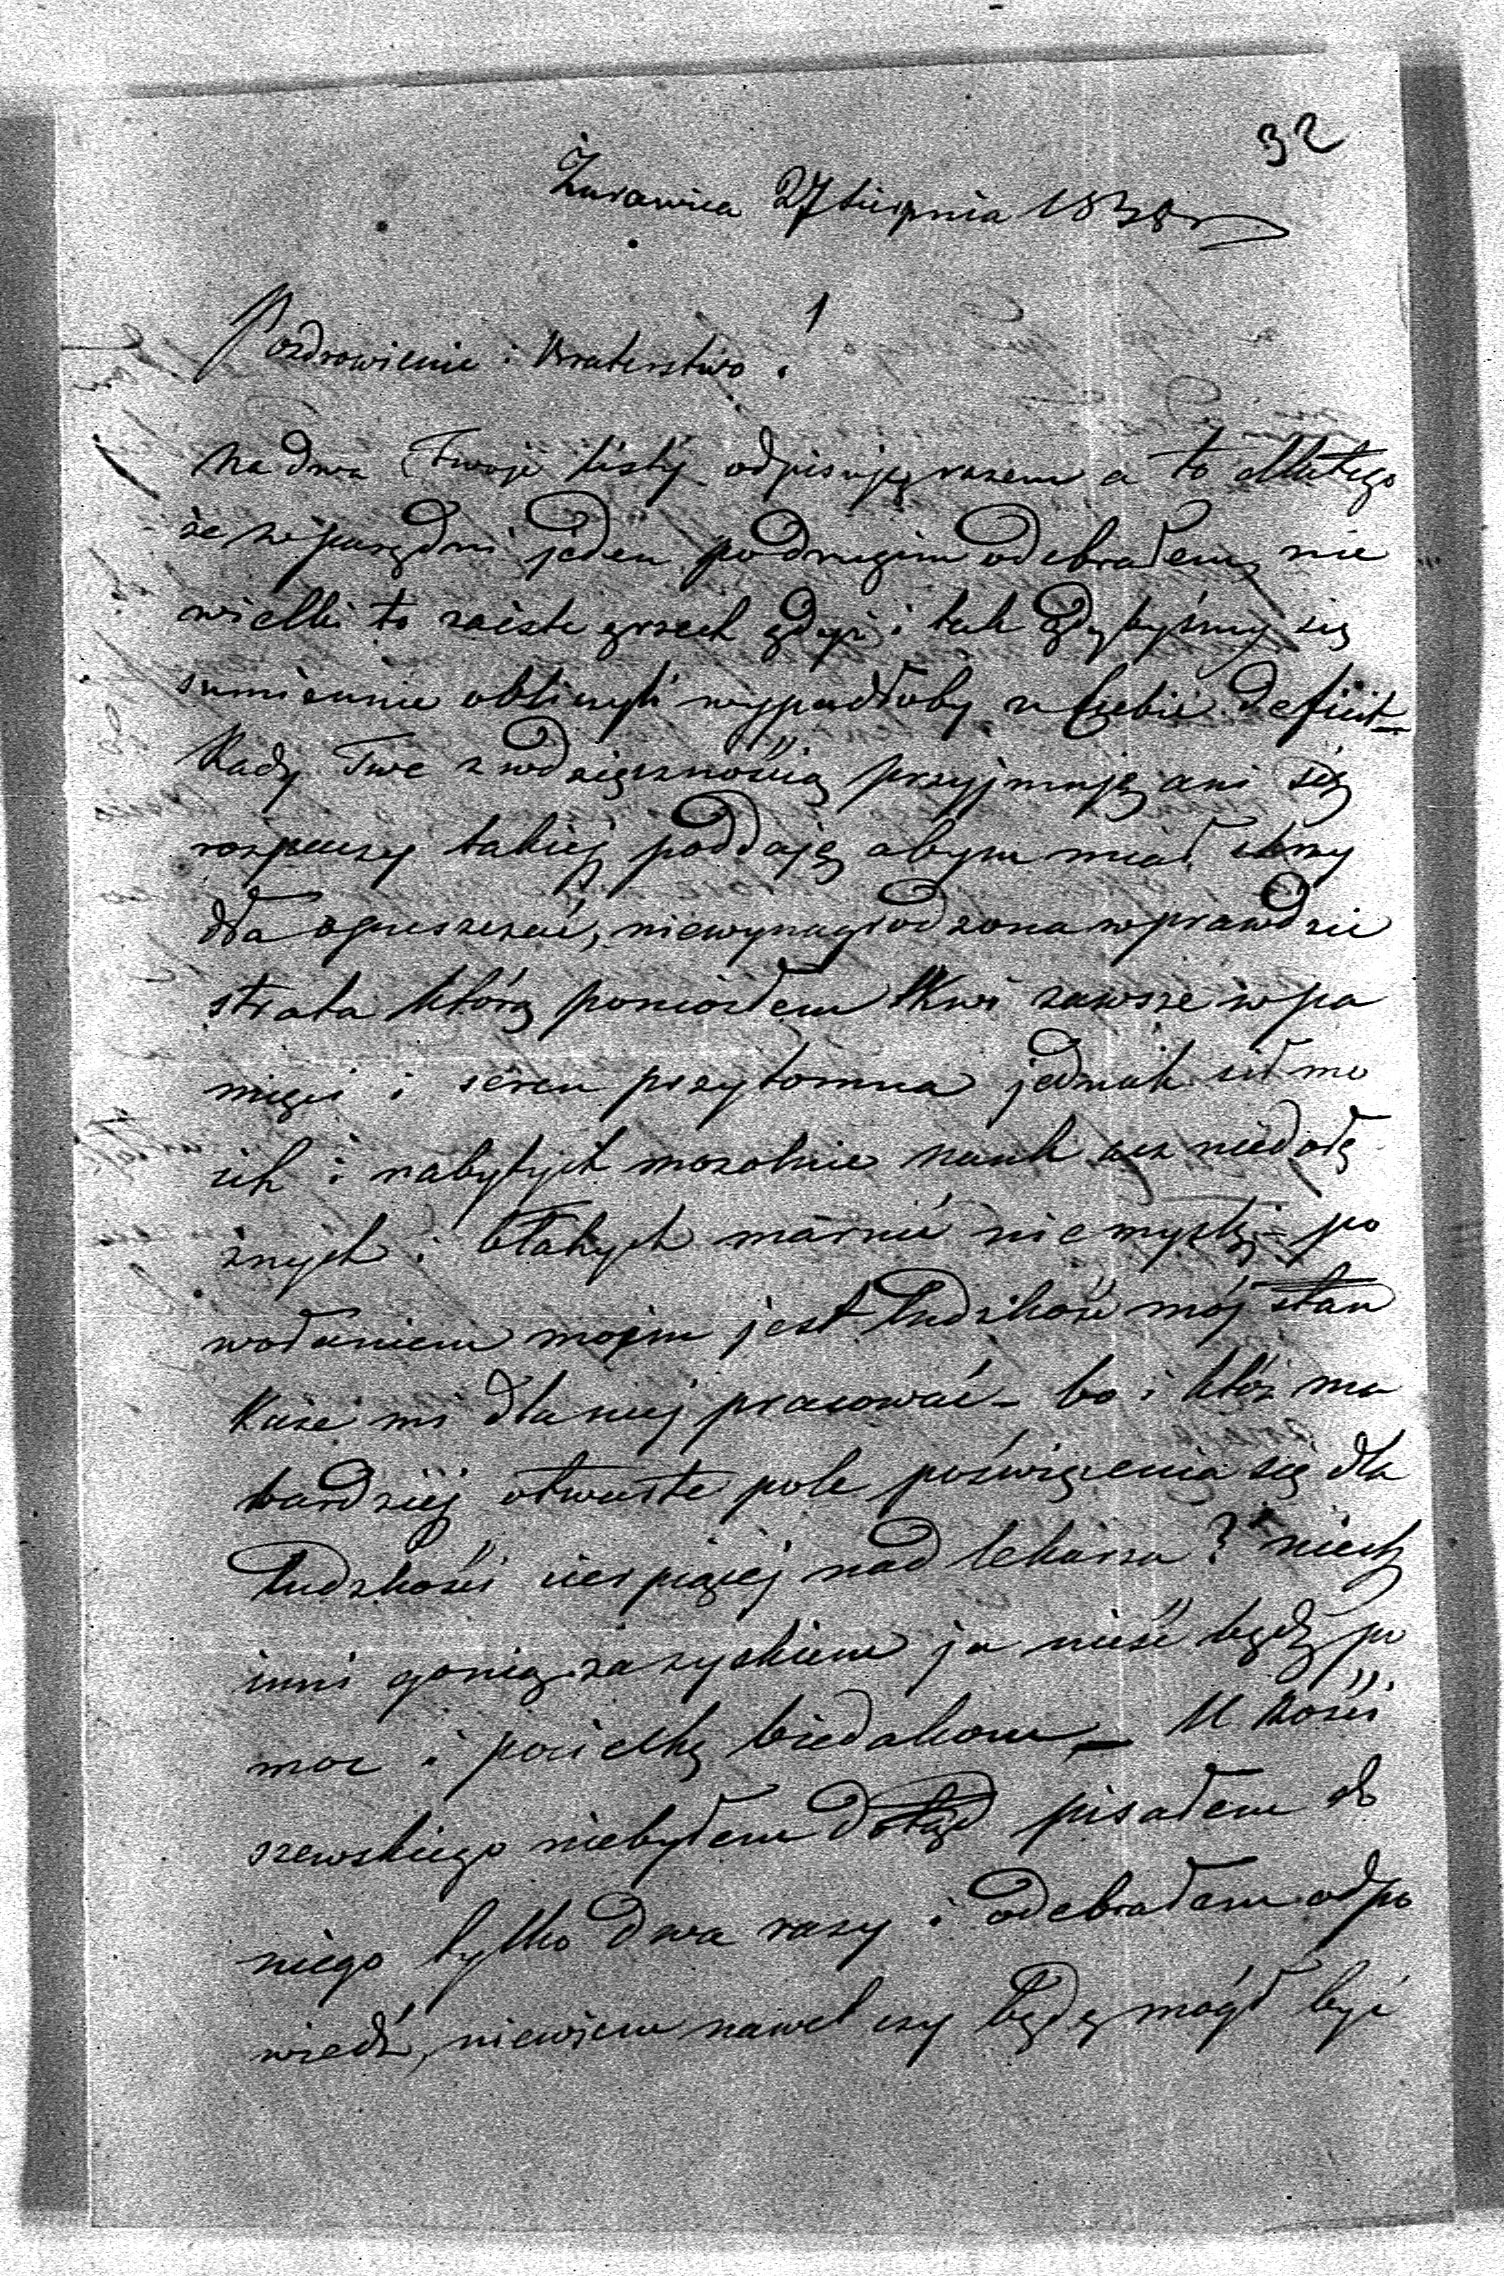 32
Żurawica 27 sierpnia 1838 r
Pozdrowienie i Braterstwo!
Na dwa Twoje listy odpisuję razem a to dlatego
że w parę dni jeden po drugim odebrałem, nie
wielki to zaiste grzech gdyż i tak gdybyśmy się
sumiennie obliczyli wypadłoby u Ciebie deficit –
Rady Twe z wdzięcznością przyjmuję, ani się
rozpaczy takiej poddaję abym miał
dła opuszczać, niewynagrodzona wprawdzie
strata którą poniosłem tkwi zawsze w pa
mięci i sercu przytomna jednak sił mo
ich i nabytych mozolnie nauk acz niedołę
żnych i błahych marnić nie myślę – po
wołaniem mojem jest ludzkość mój stan
każe mi dla niej pracować – bo i któż ma
bardziej otwarte pole poświęcenia się dla
ludzkości cierpiącej nad lekarza? niech
inni gonią za zyskiem ja nieść będę po
moc i pociechę biedakom – U Kości
szewskiego niebyłem dotąd pisałem do
niego tylko dwa razy i odebrałem odpo
wiedź, niewiem nawet czy będę mógł być